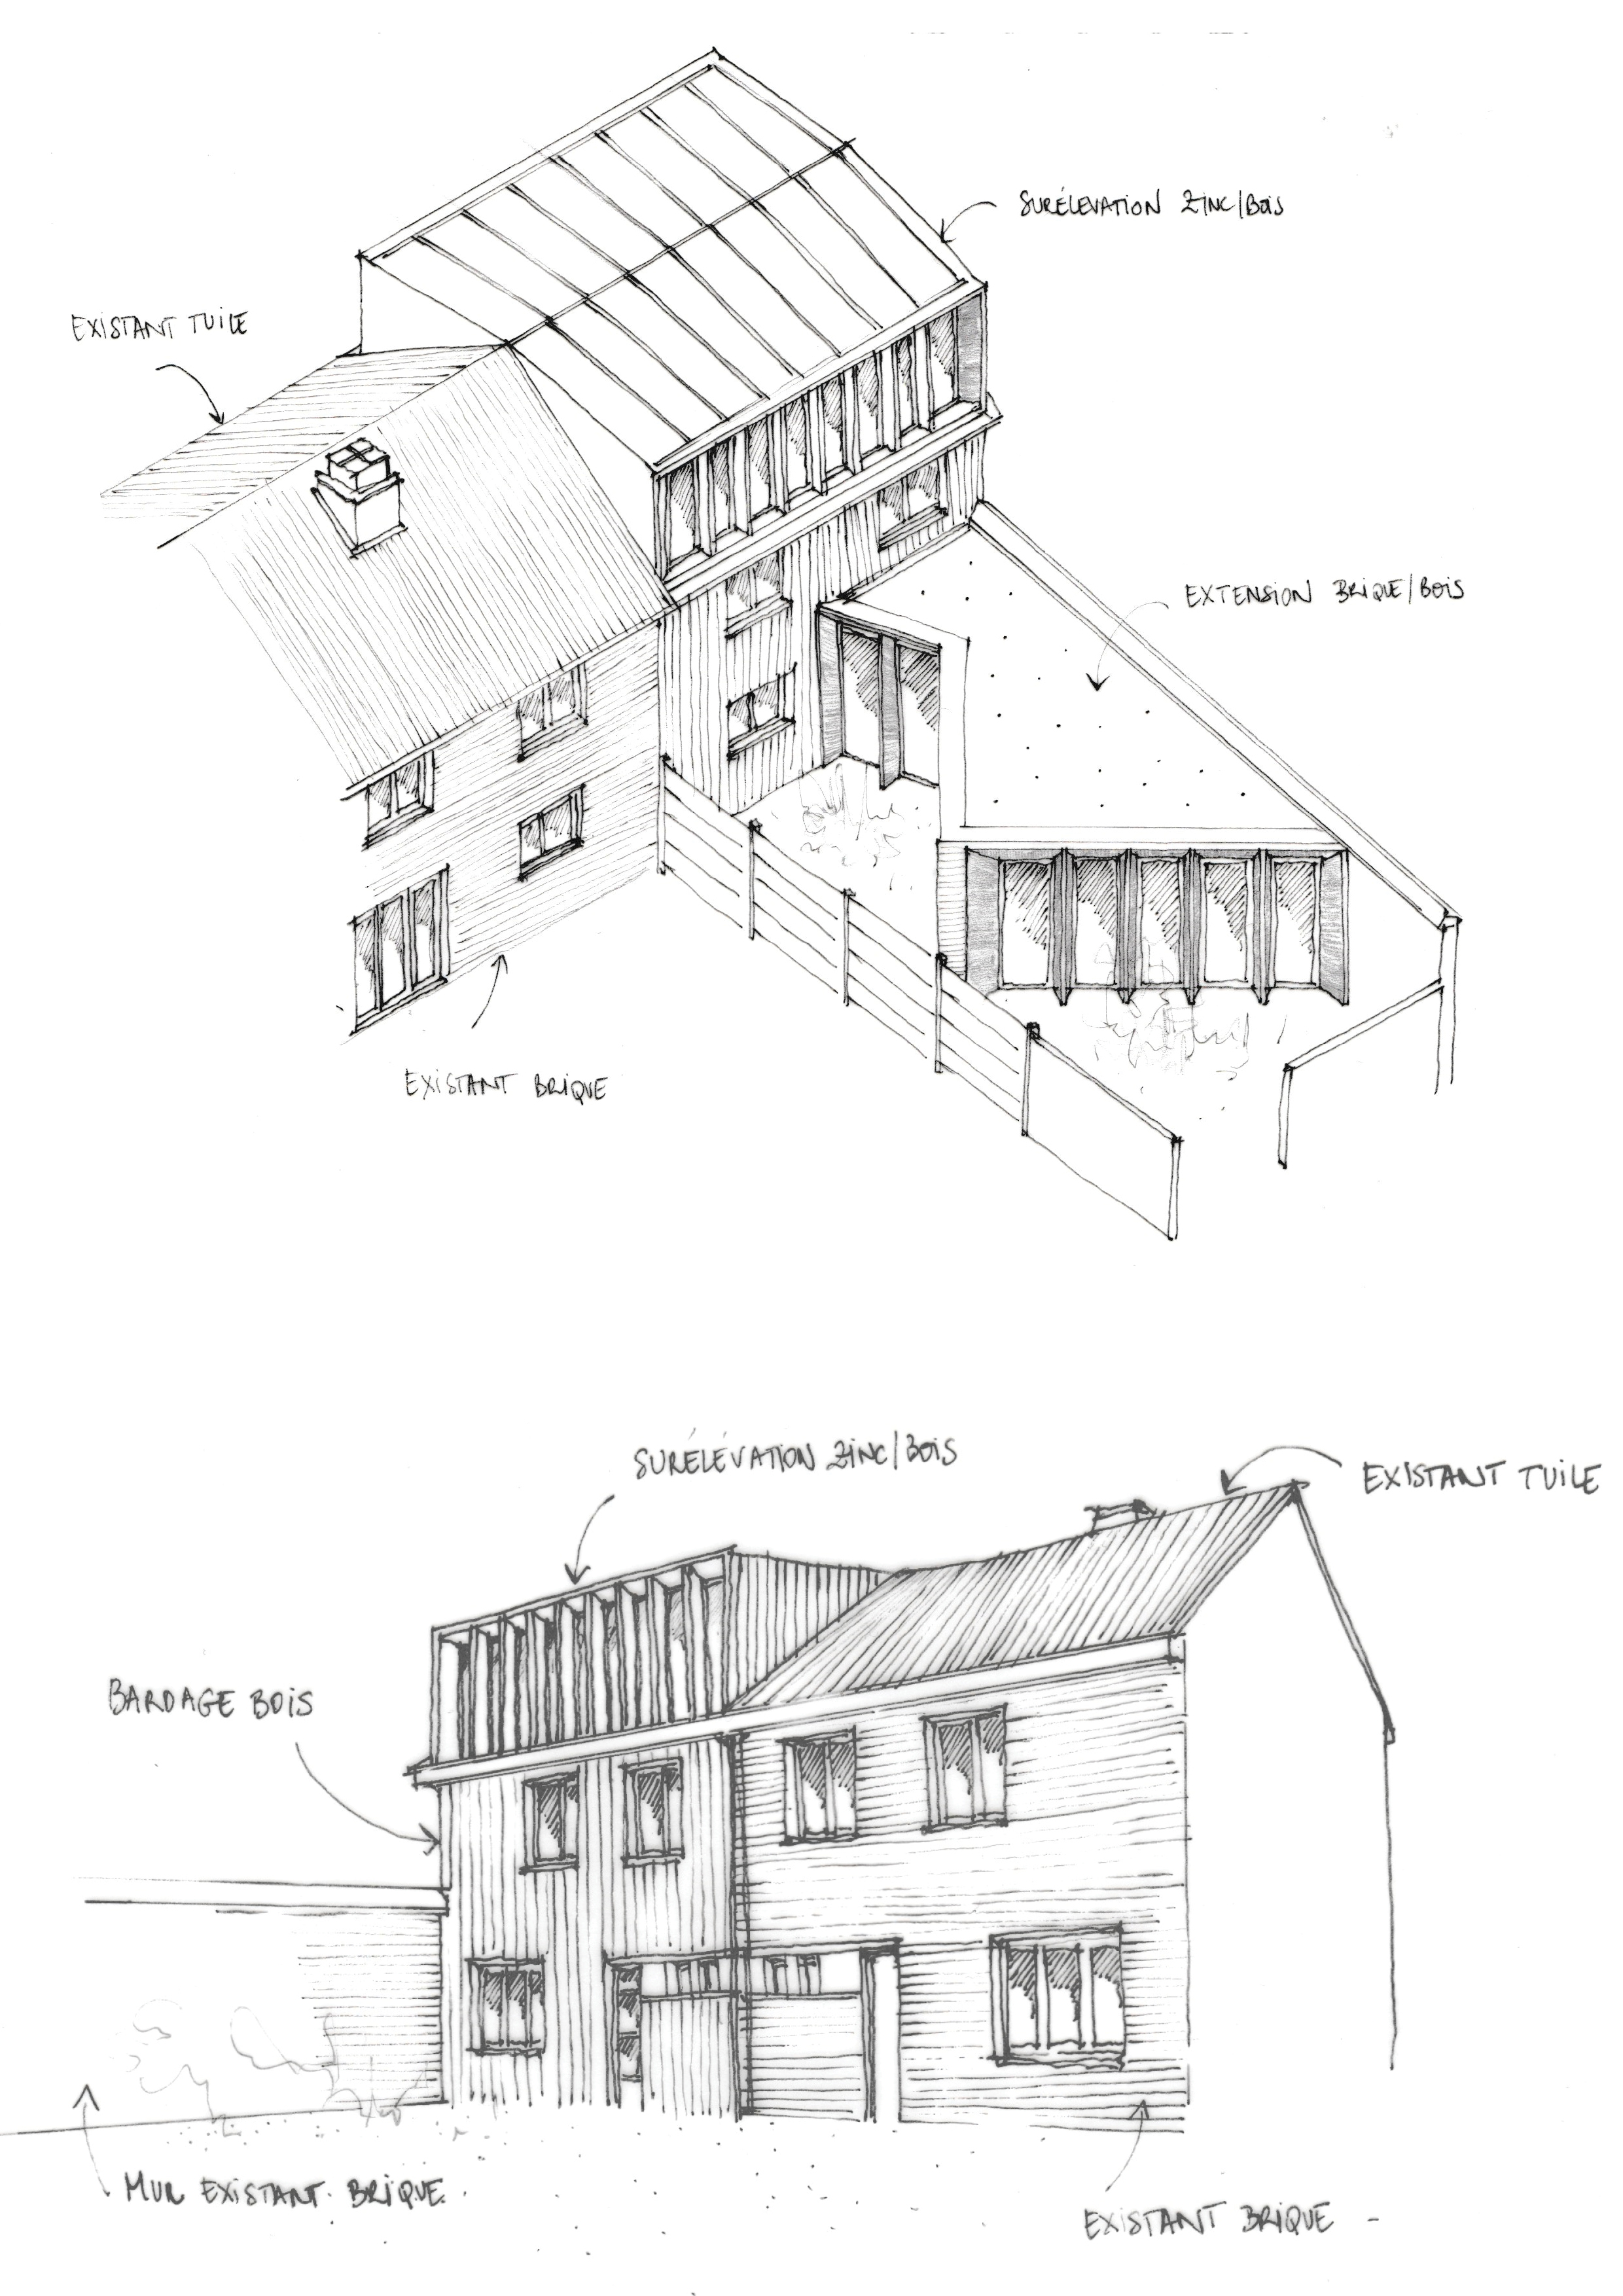 SURÉLEVATION ZINC/BOIS
EXISTANT TUILE
EXTENSION BRIQUE/BOIS
EXISTANT BRIQUE
SURÉLÉVATION ZINC/BOIS
EXISTANT TUILE
BARDAGE BOIS
MUR EXISTANT BRIQUE
EXISTANT BRIQUE